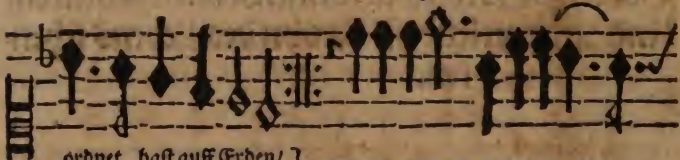 ordnet hast auff Erden/